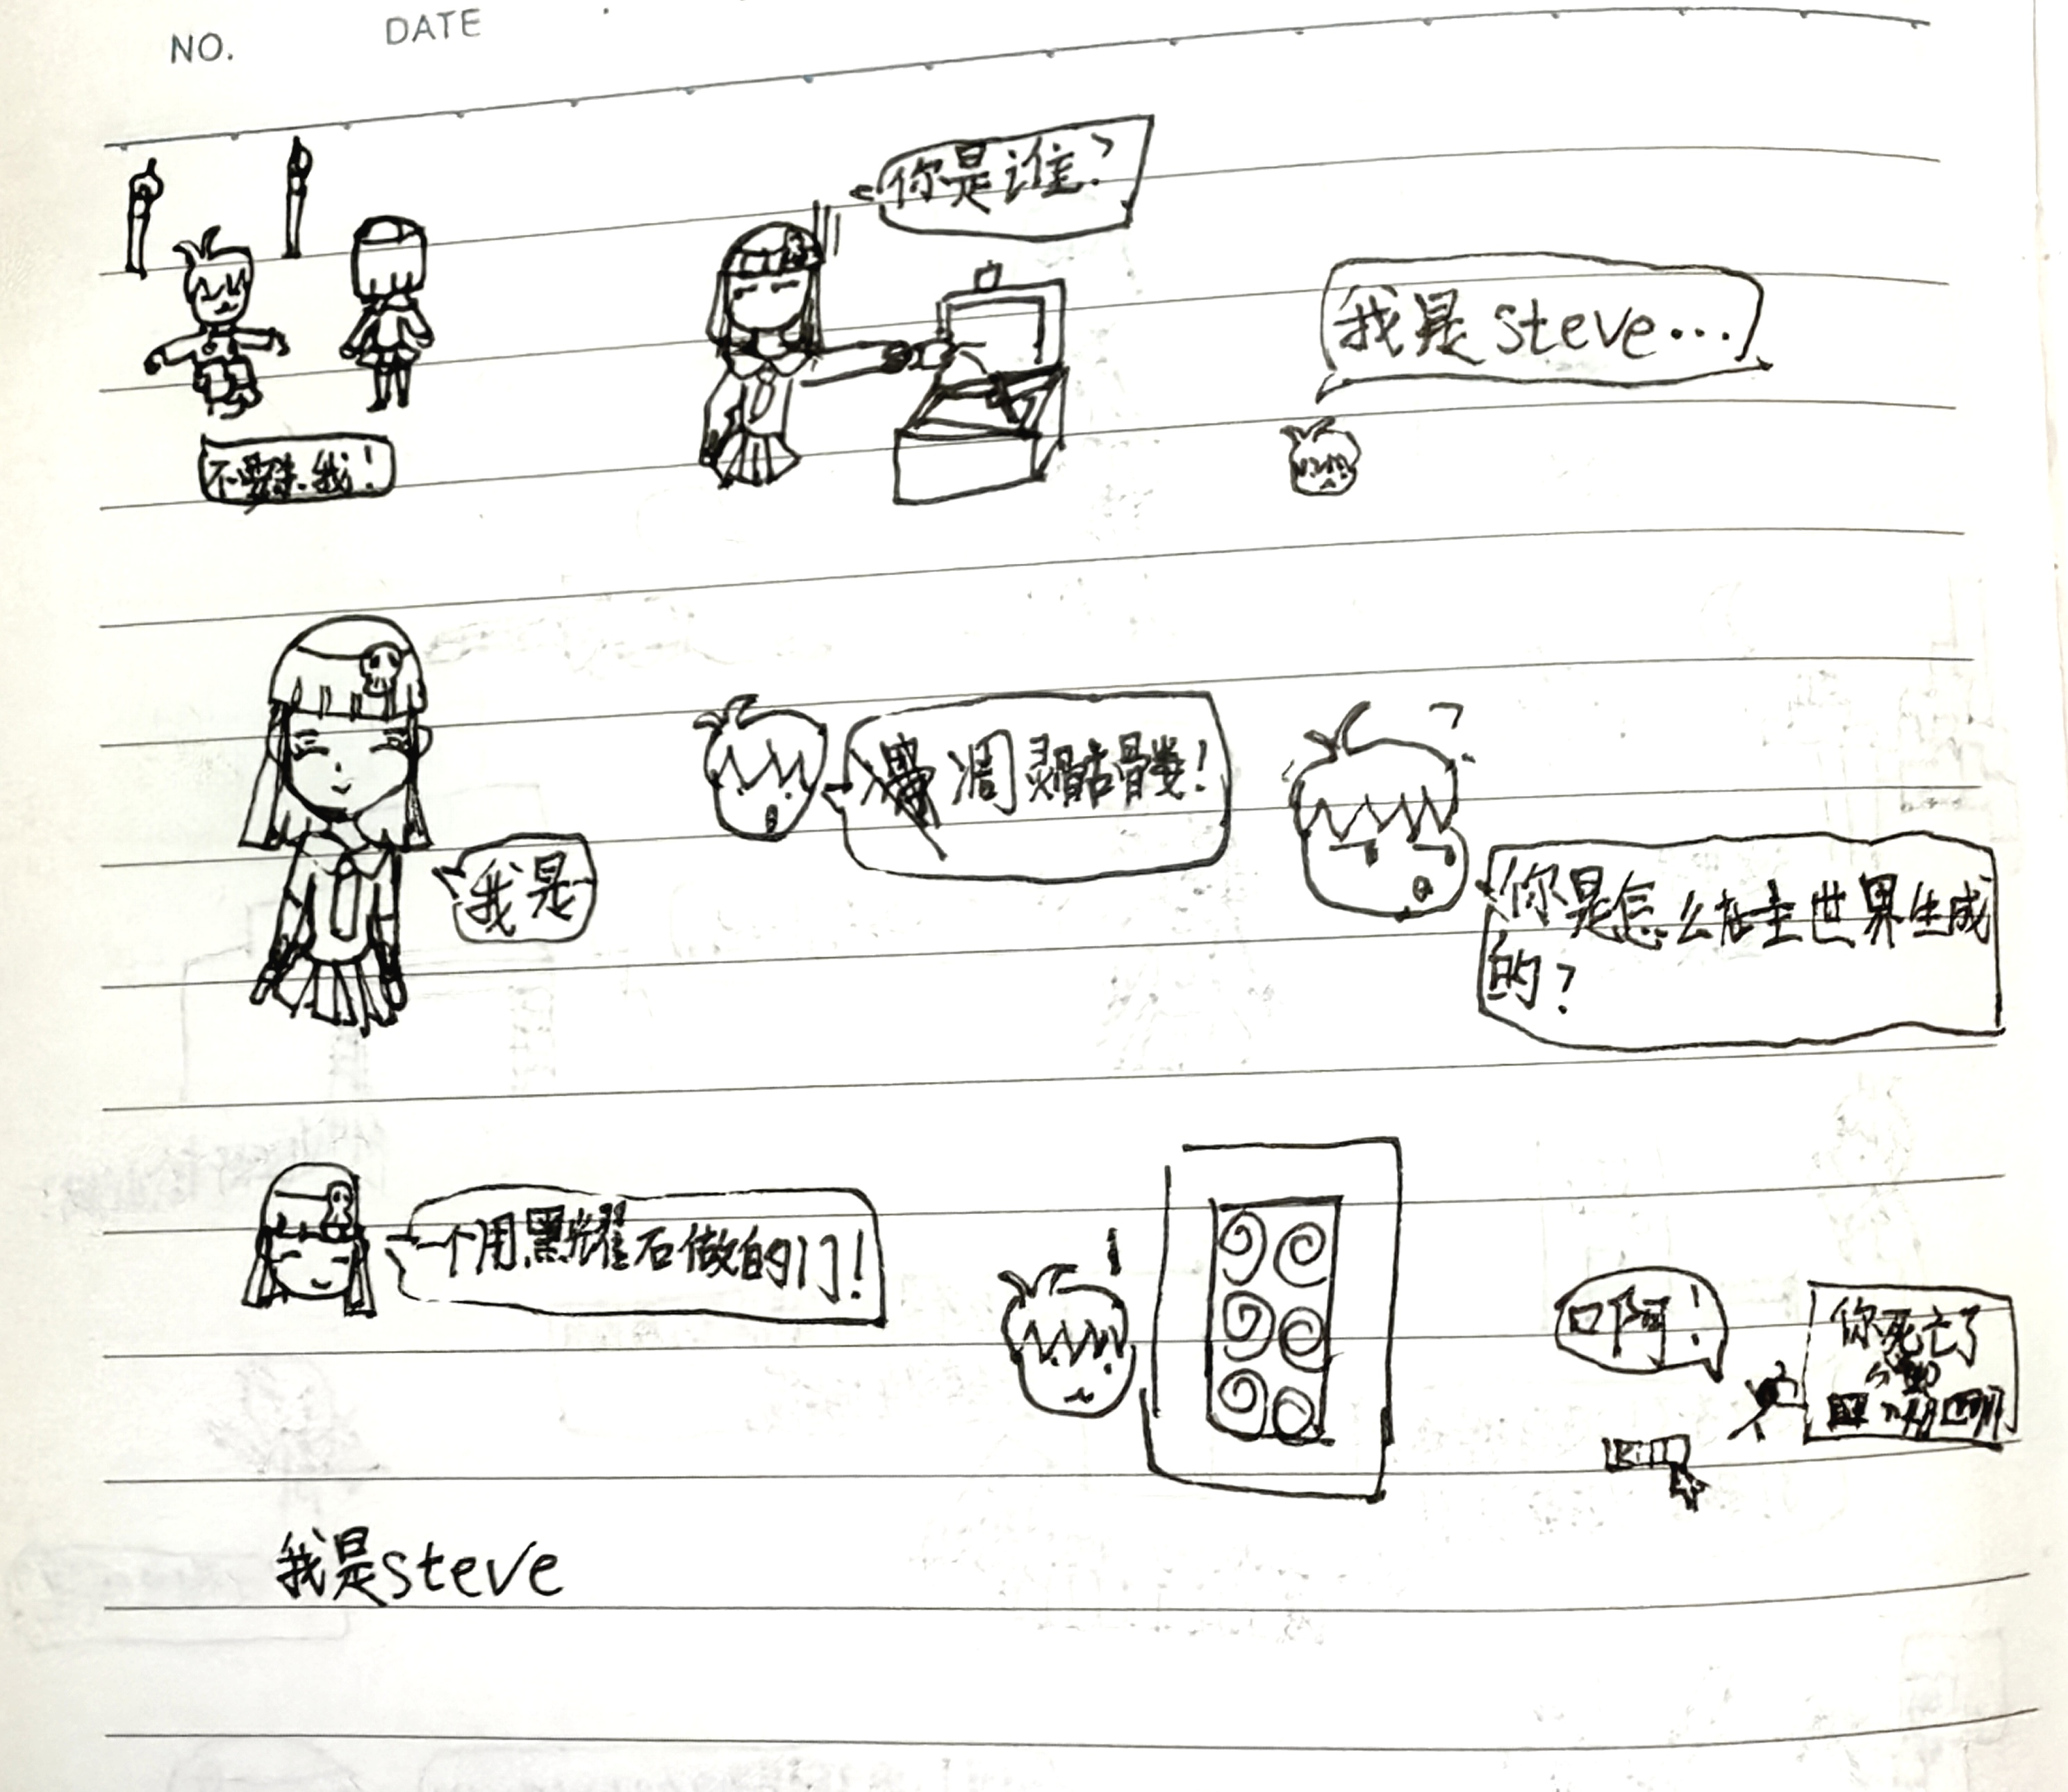 NO.
DATE
你是谁?
我是steve...
不要杀我!
我是
凋灵骷髅!
你是怎么在主世界生成
的?
一个用黑耀石做的门!
啊!
你死亡了
kill
我是steve